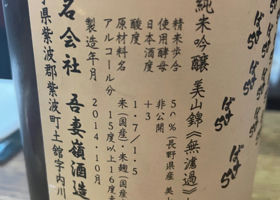 純米吟醸 美山錦《無濾過》
精米歩合 50%(長野県産 美
使用酵母 非公開
日本酒度 +3
酸度 1.7/1.5
原材料名 米(国産)・米麹(国産
アルコール分 15度以上16度
製造年月 2014.10月
名会社 吾妻嶺酒造
県紫波郡紫波町土舘字内川